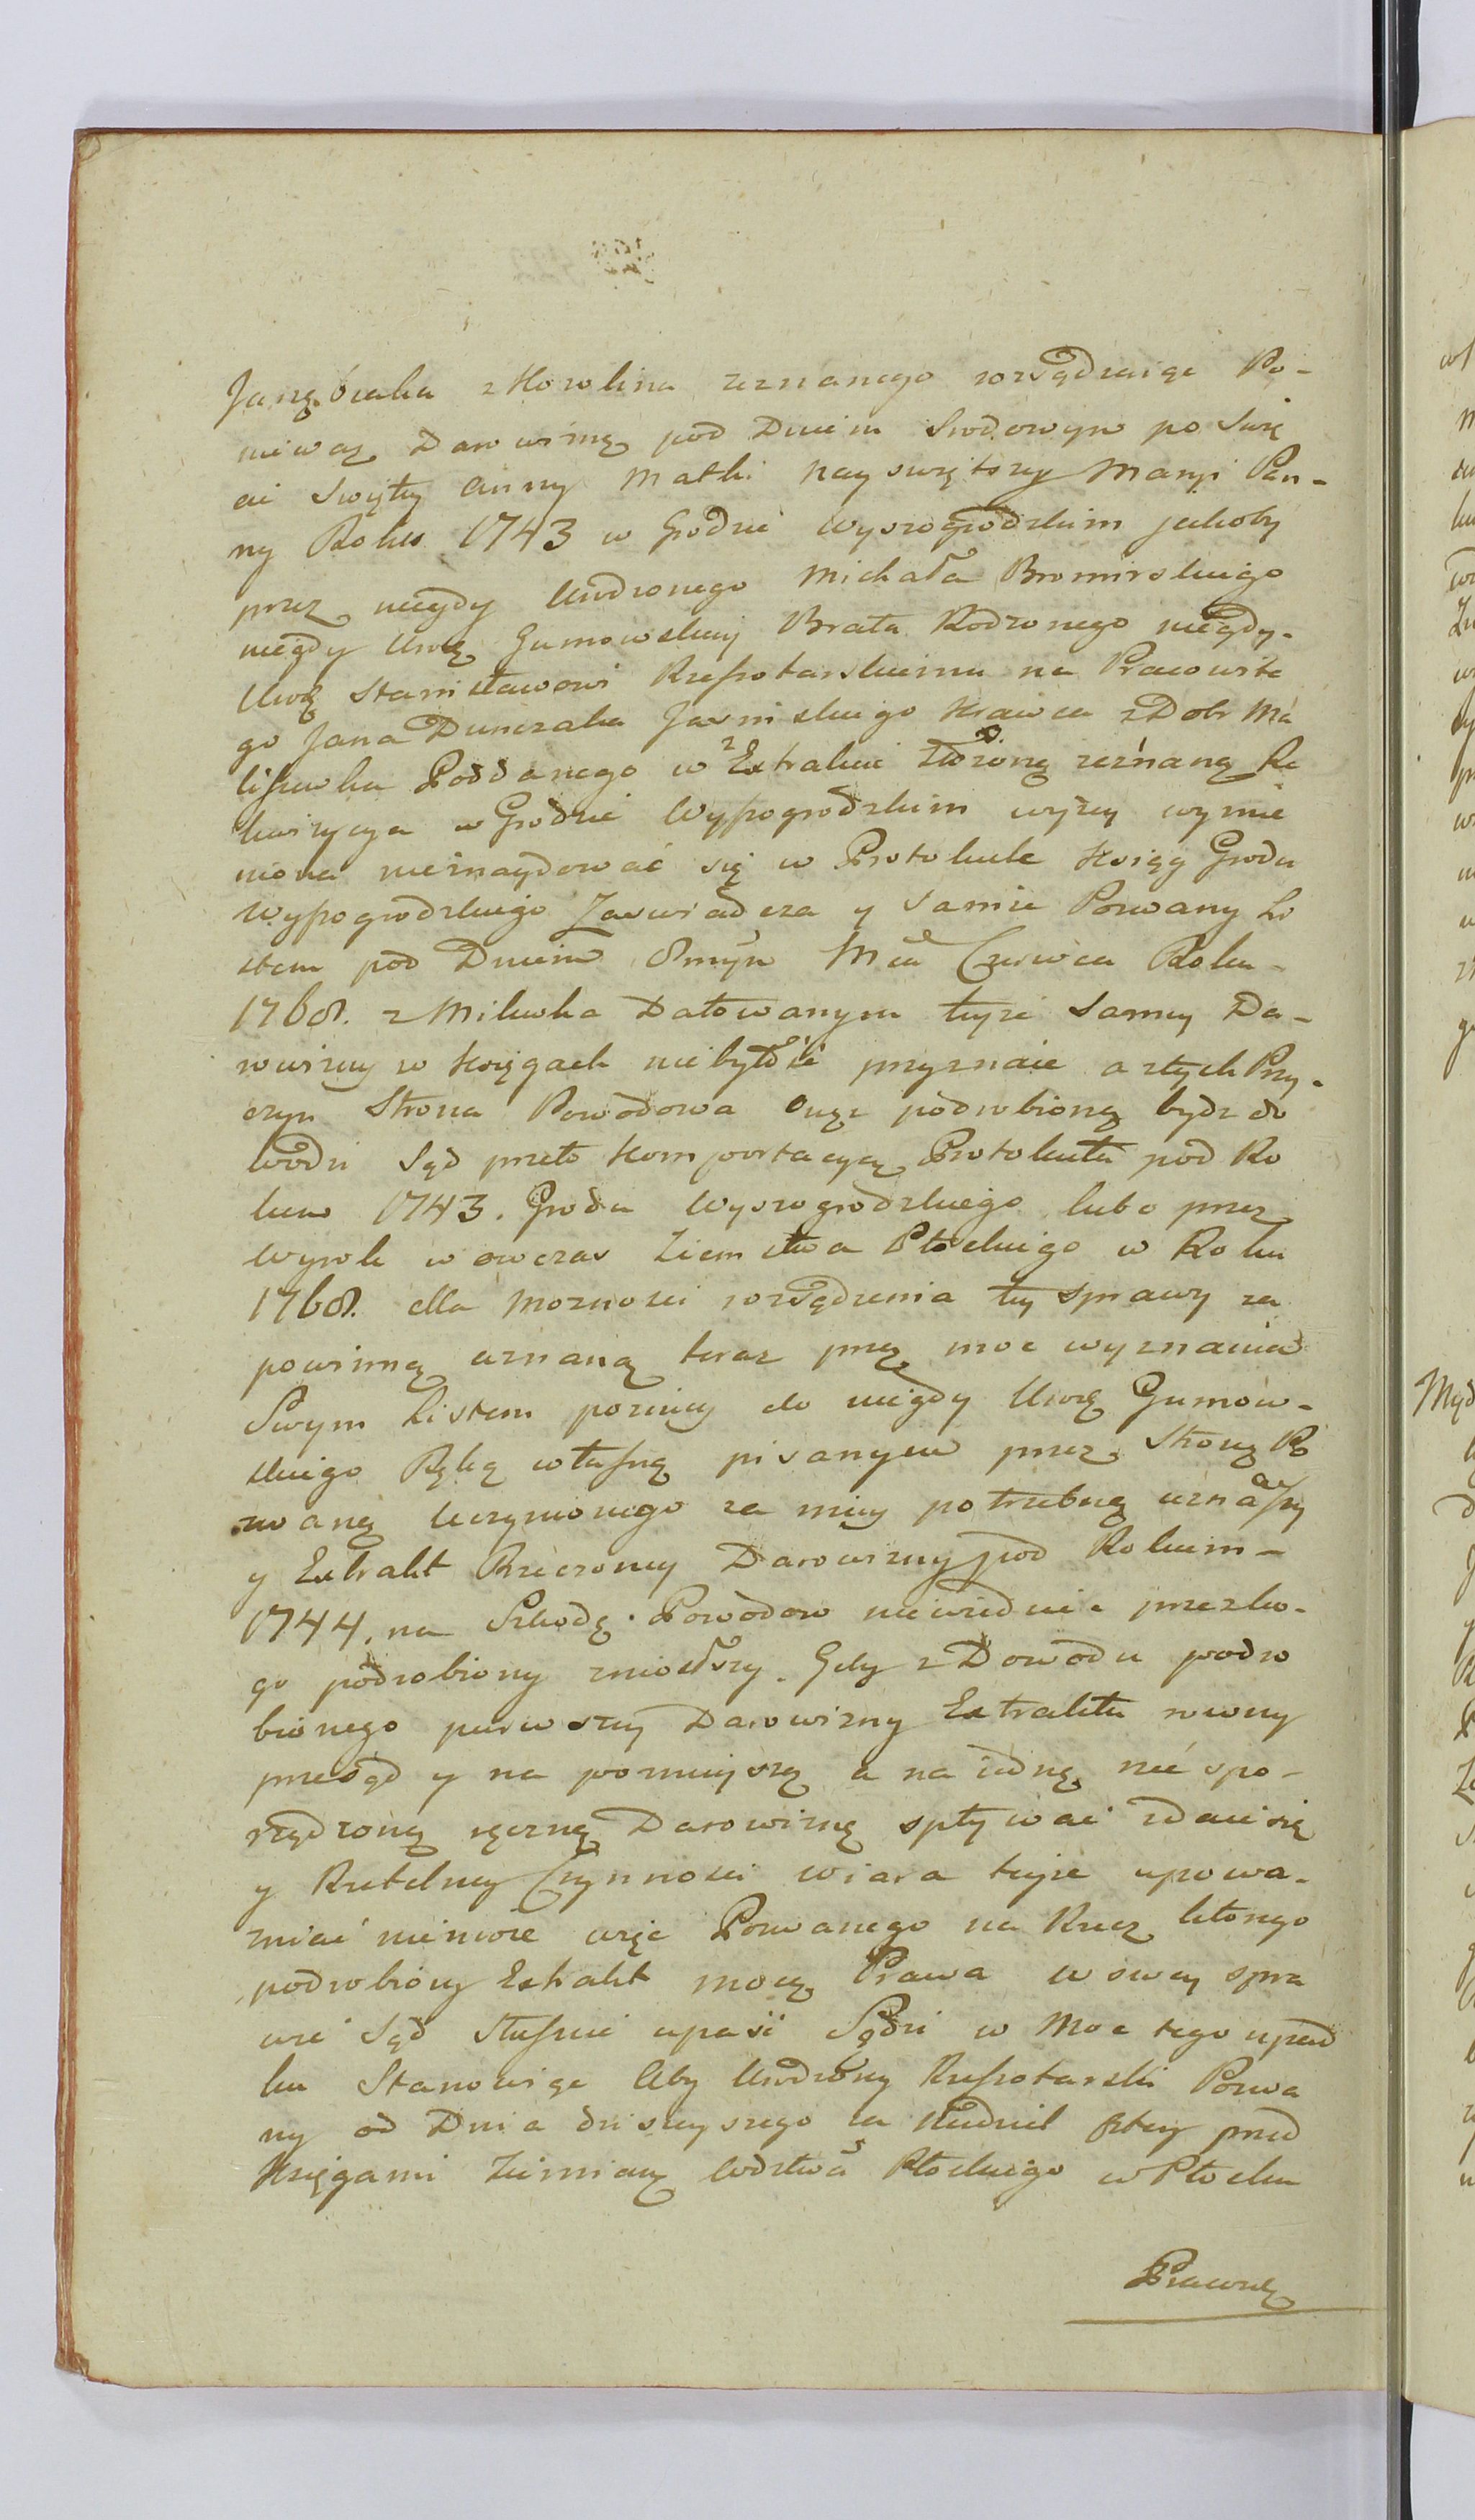 Janczówka z Kowlina zeznanego rozsądzaiąc Po-
nieważ Darowiznę pod Dniem Srodowym po Swię
ci Swiętey Anny Matki Nayswiętszey Maryi Pan-
ny Roku 1743 w Grodzie Wyszogrodzkim jakoby
przez niegdy Urodzonego Michała Bromirskiego
niegdy Urodz Gumowskiey Brata Rodzonego niegdy-
Urodz Stanisławowi Rzeszotarskiemu na Pracowite
go Jana Dunczaka Jasinskiego Krawca z Dobr Mi
liszewka Poddanego w Extrakcie złożoną zeznaną Re
kwizycya w Grodzie Wyszogrodzkim wyżey wymie
niona nieznaydować się w Protokule Ksiąg Grodu
Wyszogrodzkiego Zaswiadcza y samże Pozwany Li
stem pod Dniem 8mym Mca Czerwca Roku-
1768. z Milewka Datowanym teyże samey Da-
rowizny w Księgach niebyłosć przyznaie a z tych Przy-
czyn Strona Powodowa onęż podrobioną bydz do
wodzi Sąd przeto komportacyą Protokułu pod Ro
kiem 1743. Grodu Wyszogrodzkiego lubo przez
Wyrok w owczas Ziemstwa Płockiego w Roku
1768. dla moznosci rozsądzenia tey Sprawy za
powinną uznaną teraz przez moc wyznania
Swym Listem pozniey do niegdy Urodz Gumow-
skiego Ręką własną pisanym przez Stronę Po
zwaną uczynionego za mniey potrzebną uznawszy
y Extrakt Rzeczoney Darowizny pod Rokiem-
1744. na Szkodę Powodow niewiednie przez ko-
go podrobiony zniosłszy. Gdy z Dowodu podro
bionego pierwszey Darowizny Extraktu rowny
przesąd y na pozniejszą a na iedną nić spo-
rządzoną ręczną Darowiznę spływać zdaie się
y Rzetelney Czynnosci wiara teyże upowa-
zniać niemoże więc Pozwanego na Rzecz ktorego
podrobiony Extrakt mocą Prawa w swey spra
wie Sąd słusznie upaść Sądzi w Moc tego upad
ku Stanowiąc Aby Urodzony Rzeszotarski Pozwa
ny od Dnia dzisieyszego za Niedziel sztery przed
Xięgami Ziemiany Wdztwa Płockiego w Płocku
Prawną